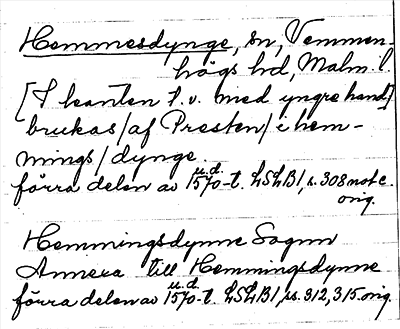 Hemmesdynge, sn, Vemmen-
högs hd, Malm. l.
[I kanten t. v. med yngre hand]
brukas/af Presten/i hem-
mings/dynge.
u. d.
förra delen av 1570-t. LSLB1, s. 308 not c.
orig.
Hemmingsdynne Sognn
Annexa till Hemmingsdynne
u. d.
förra delen av 1570-t. LSLB1, ss. 312, 315. orig.